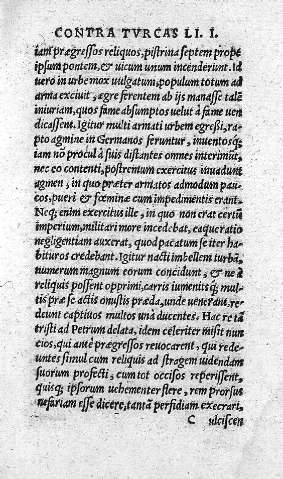 CONTRA TVRCAS LI. I.
iam prægressos reliquos, pistrina septem prope
ipsum pontem, & uicum unum incenderunt. Id
uero in urbe mox uulgatum, populum totum ad
arma exciuit, ægre ferentem ab ijs manasse talē
iniuriam, quos fame absumptos uelut à fame uen
dicassent. Igitur multi armati urbem egreßi, ra-
pto agmine in Germanos feruntur, inuentosq;
iam nō procul à suis distantes omnes interimūt,
nec eo contenti, postremum exercitus inuadunt
agmen, in quo præter armatos admodum pau-
cos, pueri & fœminæ cum impedimentis erant.
Neq; enim exercitus ille, in quo non erat certū
imperium, militari more incedebat, eaq; ratio
negligentiam auxerat, quod pacatum se iter ha-
bituros credebant. Igitur nacti imbellem turbā,
numerum magnum eorum concidunt, & ne à
reliquis possent opprimi, carris iumentisq; mul-
tis præ se actis onustis præda, unde uenerant, re-
deunt captiuos multos unà ducentes. Hac re tā
tristi ad Petrum delata, idem celeriter misit nun
cios, qui ante prægressos reuocarent, qui rede-
untes simul cum reliquis ad stragem uidendam
suorum profecti, cum tot occisos reperissent,
quisq; ipsorum uehementer flere, rem prorsus
nefariam esse dicere, tantā perfidiam execrari,
C ulciscen